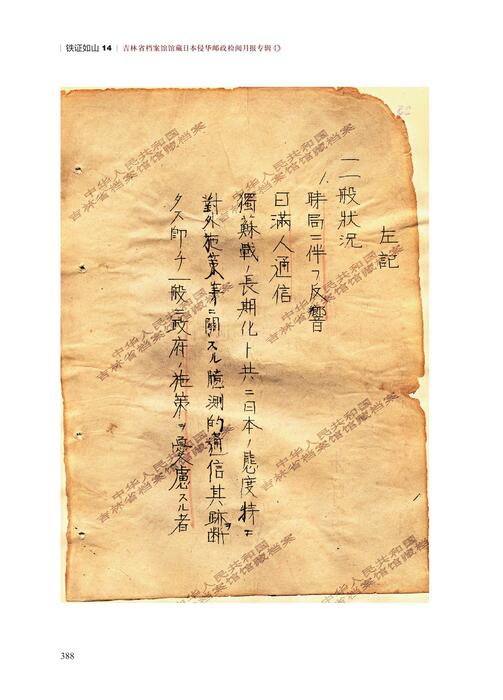 铁证如山 14 吉林省档案馆馆藏日本侵华邮政检阅月报专辑①
左記
一一般状况
1.時局ニ伴フ反響
日滿人通信
獨蘇戰ノ長期化ト共ニ日本ノ態度特ニ
對外施策等ニ關スル臆測的通信其跡ヲ断
タス即チ一般ニ政府ノ施策ヲ憂慮スル者
中华人民共和国
吉林省档案馆馆藏档案
中华人民共和国
吉林省档案馆馆藏档案
中华人民共和国
吉林省档案馆馆藏档案
中华人民共和国
吉林省档案馆馆藏档案
中华人民共和国
吉林省档案馆馆藏档案
中华人民共和国
吉林省档案馆馆藏档案
388